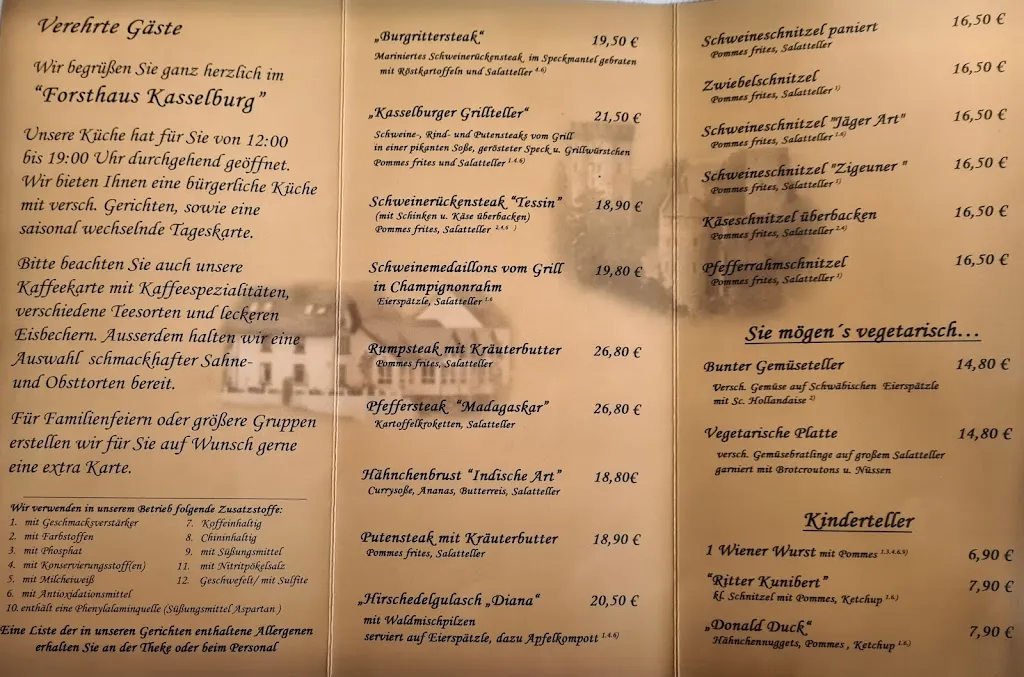 Verehrte Gäste
Wir begrüßen Sie ganz herzlich im
“Forsthaus Kasselburg”
Unsere Küche hat für Sie von 12:00
bis 19:00 Uhr durchgehend geöffnet.
Wir bieten Ihnen eine bürgerliche Küche
mit versch. Gerichten, sowie eine
saisonal wechselnde Tageskarte.
Bitte beachten Sie auch unsere
Kaffeekarte mit Kaffeespezialitäten,
verschiedene Teesorten und leckeren
Eisbechern. Ausserdem halten wir eine
Auswahl schmackhafter Sahne-
und Obsttorten bereit.
Für Familienfeiern oder größere Gruppen
erstellen wir für Sie auf Wunsch gerne
eine extra Karte.
Wir verwenden in unserem Betrieb folgende Zusatzstoffe:
1. mit Geschmacksverstärker
2. mit Farbstoffen
3. mit Phosphat
4. mit Konservierungsstoff(en)
5. mit Milcheiweiß
6. mit Antioxidationsmittel
7. Koffeinhaltig
8. Chininhaltig
9. mit Süßungsmittel
11. mit Nitritpökelsalz
12. Geschwefelt/ mit Sulfite
10. enthält eine Phenylalaminquelle (Süßungsmittel Aspartan )
Eine Liste der in unseren Gerichten enthaltene Allergenen
erhalten Sie an der Theke oder beim Personal
„Burgrittersteak“ 19,50 €
Mariniertes Schweinerückensteak im Speckmantel gebraten
mit Röstkartoffeln und Salatteller 4.6)
„Kasselburger Grillteller“ 21,50 €
Schweine-, Rind- und Putensteaks vom Grill
in einer pikanten Soße, gerösteter Speck u. Grillwürstchen
Pommes frites und Salatteller 1.4.6)
Schweinerückensteak “Tessin” 18,90 €
(mit Schinken u. Käse überbacken)
Pommes frites, Salatteller 2.4.6 )
Schweinemedaillons vom Grill 19,80 €
in Champignonrahm
Eierspätzle, Salatteller 1.6
Rumpsteak mit Kräuterbutter 26,80 €
Pommes frites, Salatteller
Pfeffersteak “Madagaskar” 26,80 €
Kartoffelkroketten, Salatteller
Hähnchenbrust “Indische Art” 18,80€
Currysoße, Ananas, Butterreis, Salatteller
Putensteak mit Kräuterbutter 18,90 €
Pommes frites, Salatteller
„Hirschedelgulasch „Diana“ 20,50 €
mit Waldmischpilzen
serviert auf Eierspätzle, dazu Apfelkompott 1.4.6)
Schweineschnitzel paniert 16,50 €
Pommes frites, Salatteller
Zwiebelschnitzel 16,50 €
Pommes frites, Salatteller
Schweineschnitzel "Jäger Art" 16,50 €
Pommes frites, Salatteller 1.6)
Schweineschnitzel "Zigeuner " 16,50 €
Pommes frites, Salatteller
Käseschnitzel überbacken 16,50 €
Pommes frites, Salatteller 2.4)
Pfefferrahmschnitzel 16,50 €
Pommes frites, Salatteller
Sie mögen´s vegetarisch…
Bunter Gemüseteller 14,80 €
Versch. Gemüse auf Schwäbischen Eierspätzle
mit Sc. Hollandaise 2)
Vegetarische Platte 14,80 €
versch. Gemüsebratlinge auf großem Salatteller
garniert mit Brotcroutons u. Nüssen
Kinderteller
1 Wiener Wurst mit Pommes 6,90 €
“Ritter Kunibert” 7,90 €
kl. Schnitzel mit Pommes, Ketchup 1.6.)
„Donald Duck“ 7,90 €
Hähnchennuggets, Pommes , Ketchup 1.6.)